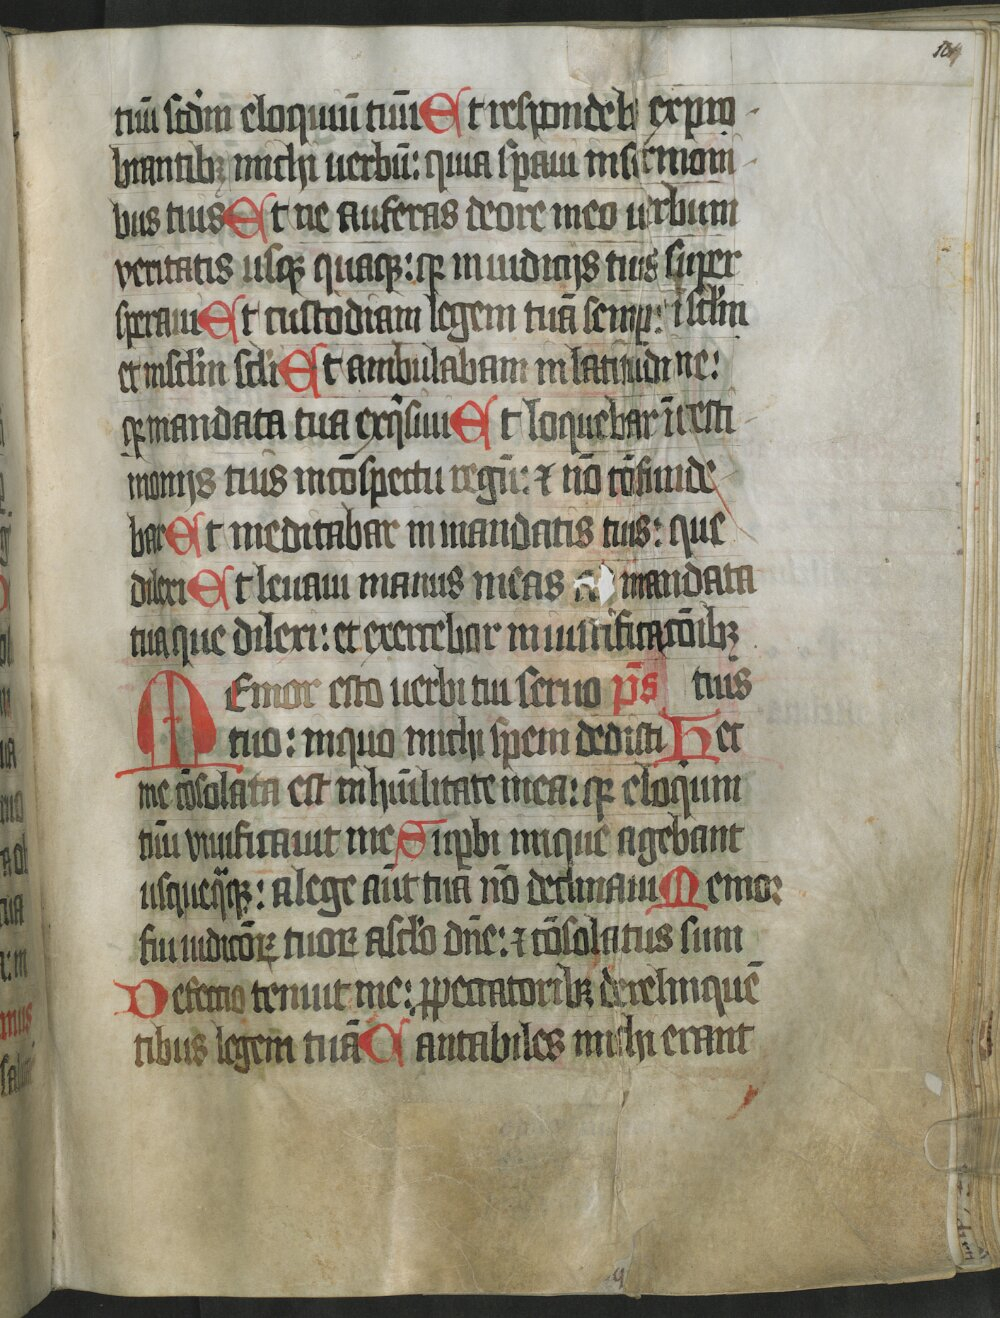 104
tuū scd̄m eloquiū tuū Et respondeb expro
brantibꝫ michi uerbū: quia sꝑaui in sermoni
bus tuis Et ne auferas de ore meo uerbum
veritatis usqꝫ quaqꝫ: qꝛ in iudicijs tuis super
speraui Et custodiam legem tuā semꝑ: ī sclm̄
et in sclm̄ scli Et ambulabam in latitudine:
qꝛ mandata tua exq̄siui Et loquebar ī testi
monijs tuis in cōspectu regū: ⁊ nō cōfunde
bar Et meditabar in mandatis tuis: que
dilexi Et leuaui manus meas a mandata
tua que dilexi: et exercebor in iustificacōibꝫ
Memor esto uerbi tui seruo p̄s tuis
tuo: in quo michi spem dedisti Hec
me cōsolata est in hūilitate mea: qꝛ eloqūm
tuū viuificauit me Suꝑbi inique agebant
usquequaqꝫ: a lege aūt tuā nō declinaui Memor
fui iudicōꝝ tuoꝝ a sclo dn̄e: ⁊ cōsolatus sum
Defectio tenuit me: ꝑ peccatoribꝫ derelinquē
tibus legem tuā Cantabiles michi erant